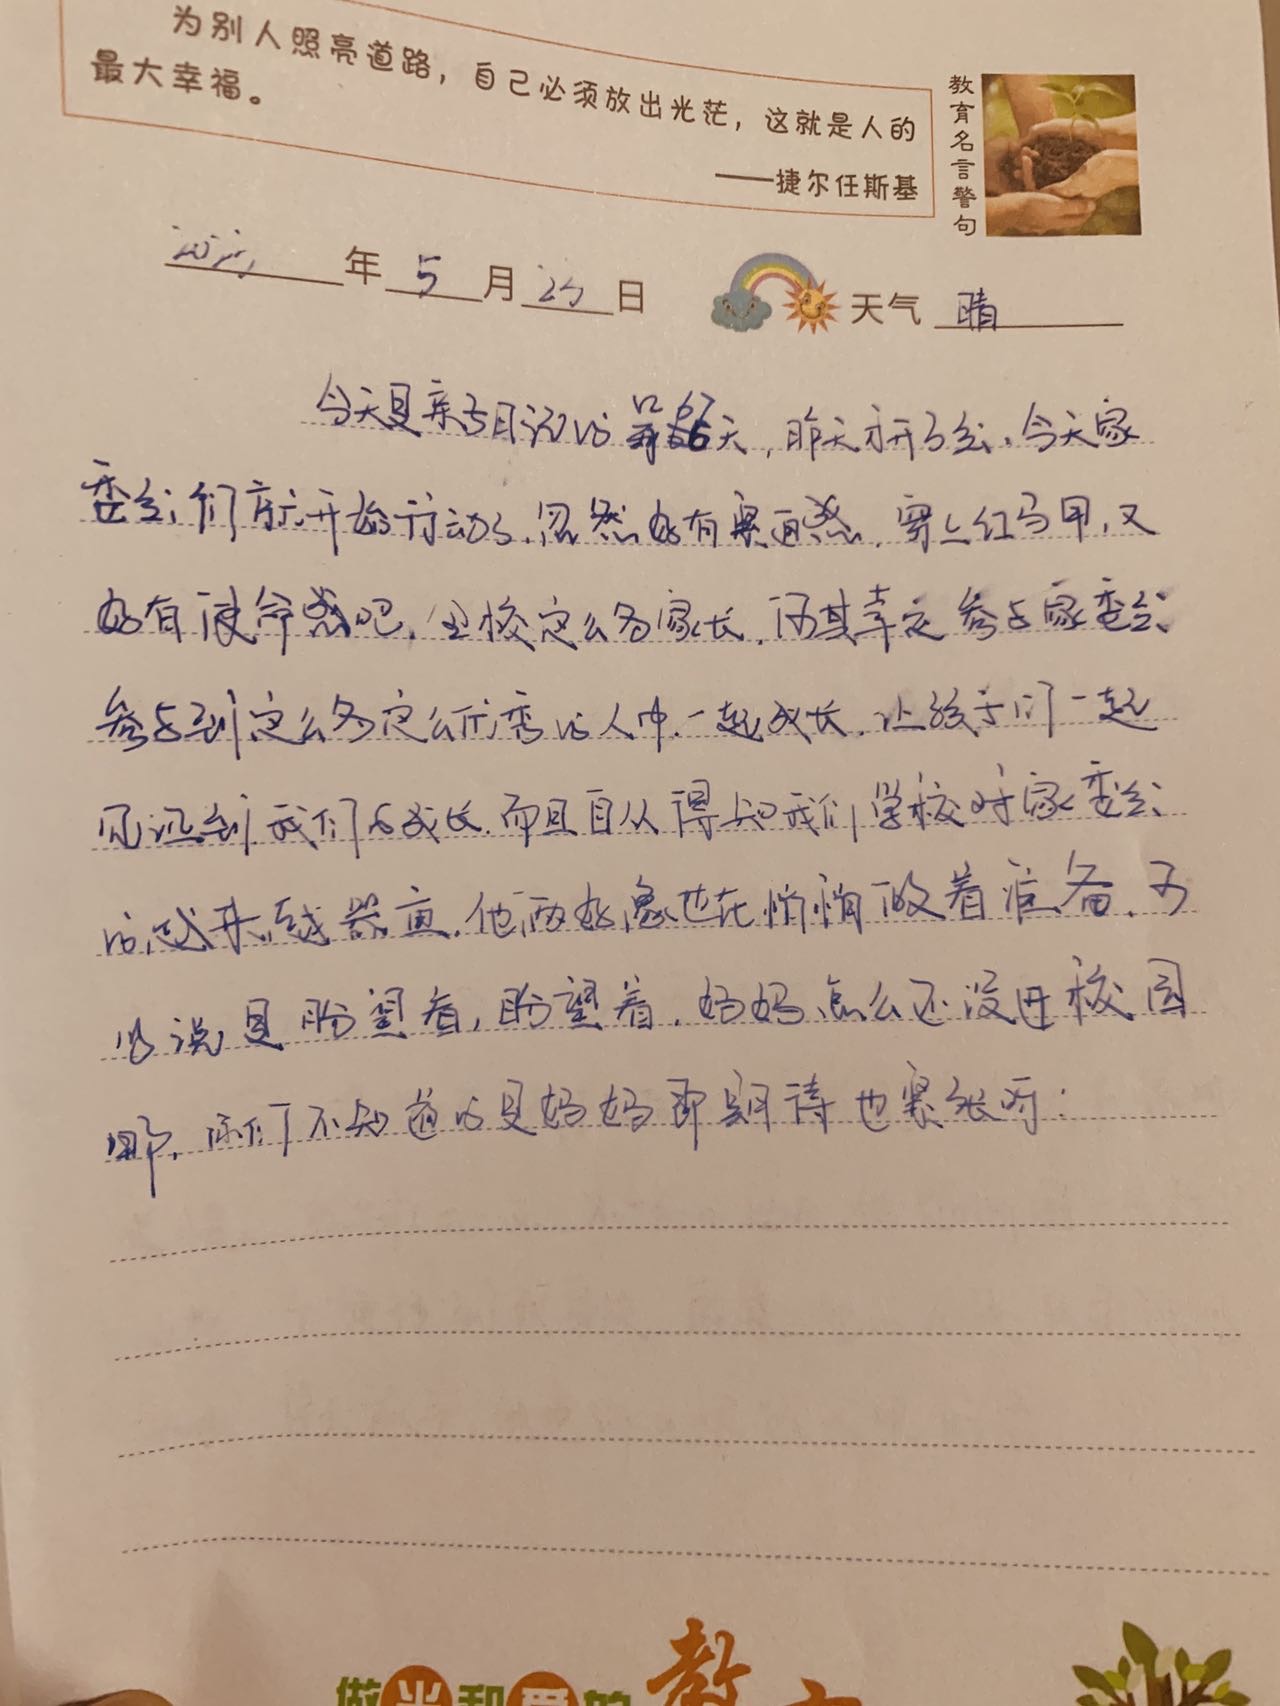 为别人照亮道路，自己必须放出光茫，这就是人的
最大幸福。
——捷尔任斯基
教育名言警句
年 5 月 25 日
天气 晴
今天是亲子日记的第 天，昨天才开了会，今天家
委会们就开始行动了，忽然好有画面感，穿上红马甲，又
好有使命感吧，全校这么多家长，而其幸运参与家委会
参与到这么多这么优秀的人中，一起成长，让孩子们一起
见证到我们的成长，而且自从得知我们学校对家委会
的越来越器重，他两好像也在悄悄的做着准备，可
以说是盼望着，盼望着，妈妈怎么还没进校园
哪，你们不知道的是妈妈即期待也紧张呀！
做光和爱的教